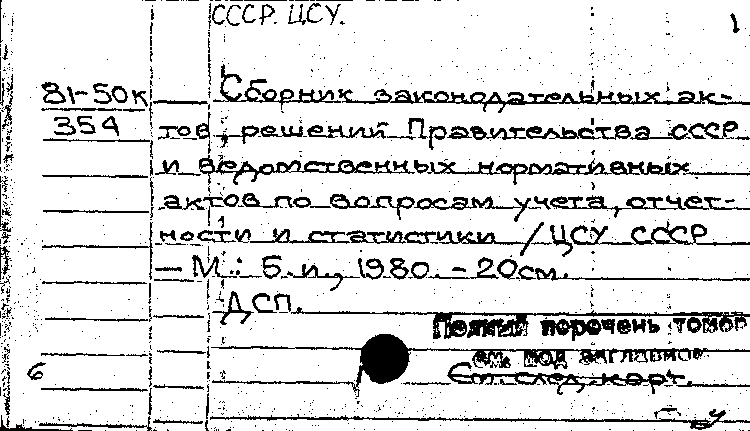 СССР. ЦСУ.
1
81-50к
354
Сборник законодательных ак-
тов, решений Правительства СССР
и ведомственных нормативных
актов по вопросам учета, отчет-
ности и статистики / ЦСУ СССР
— М.: Б.и., 1980. - 20см.
ДСП.
Полный перечень томов
см. под заглавием
См. след. карт.
6